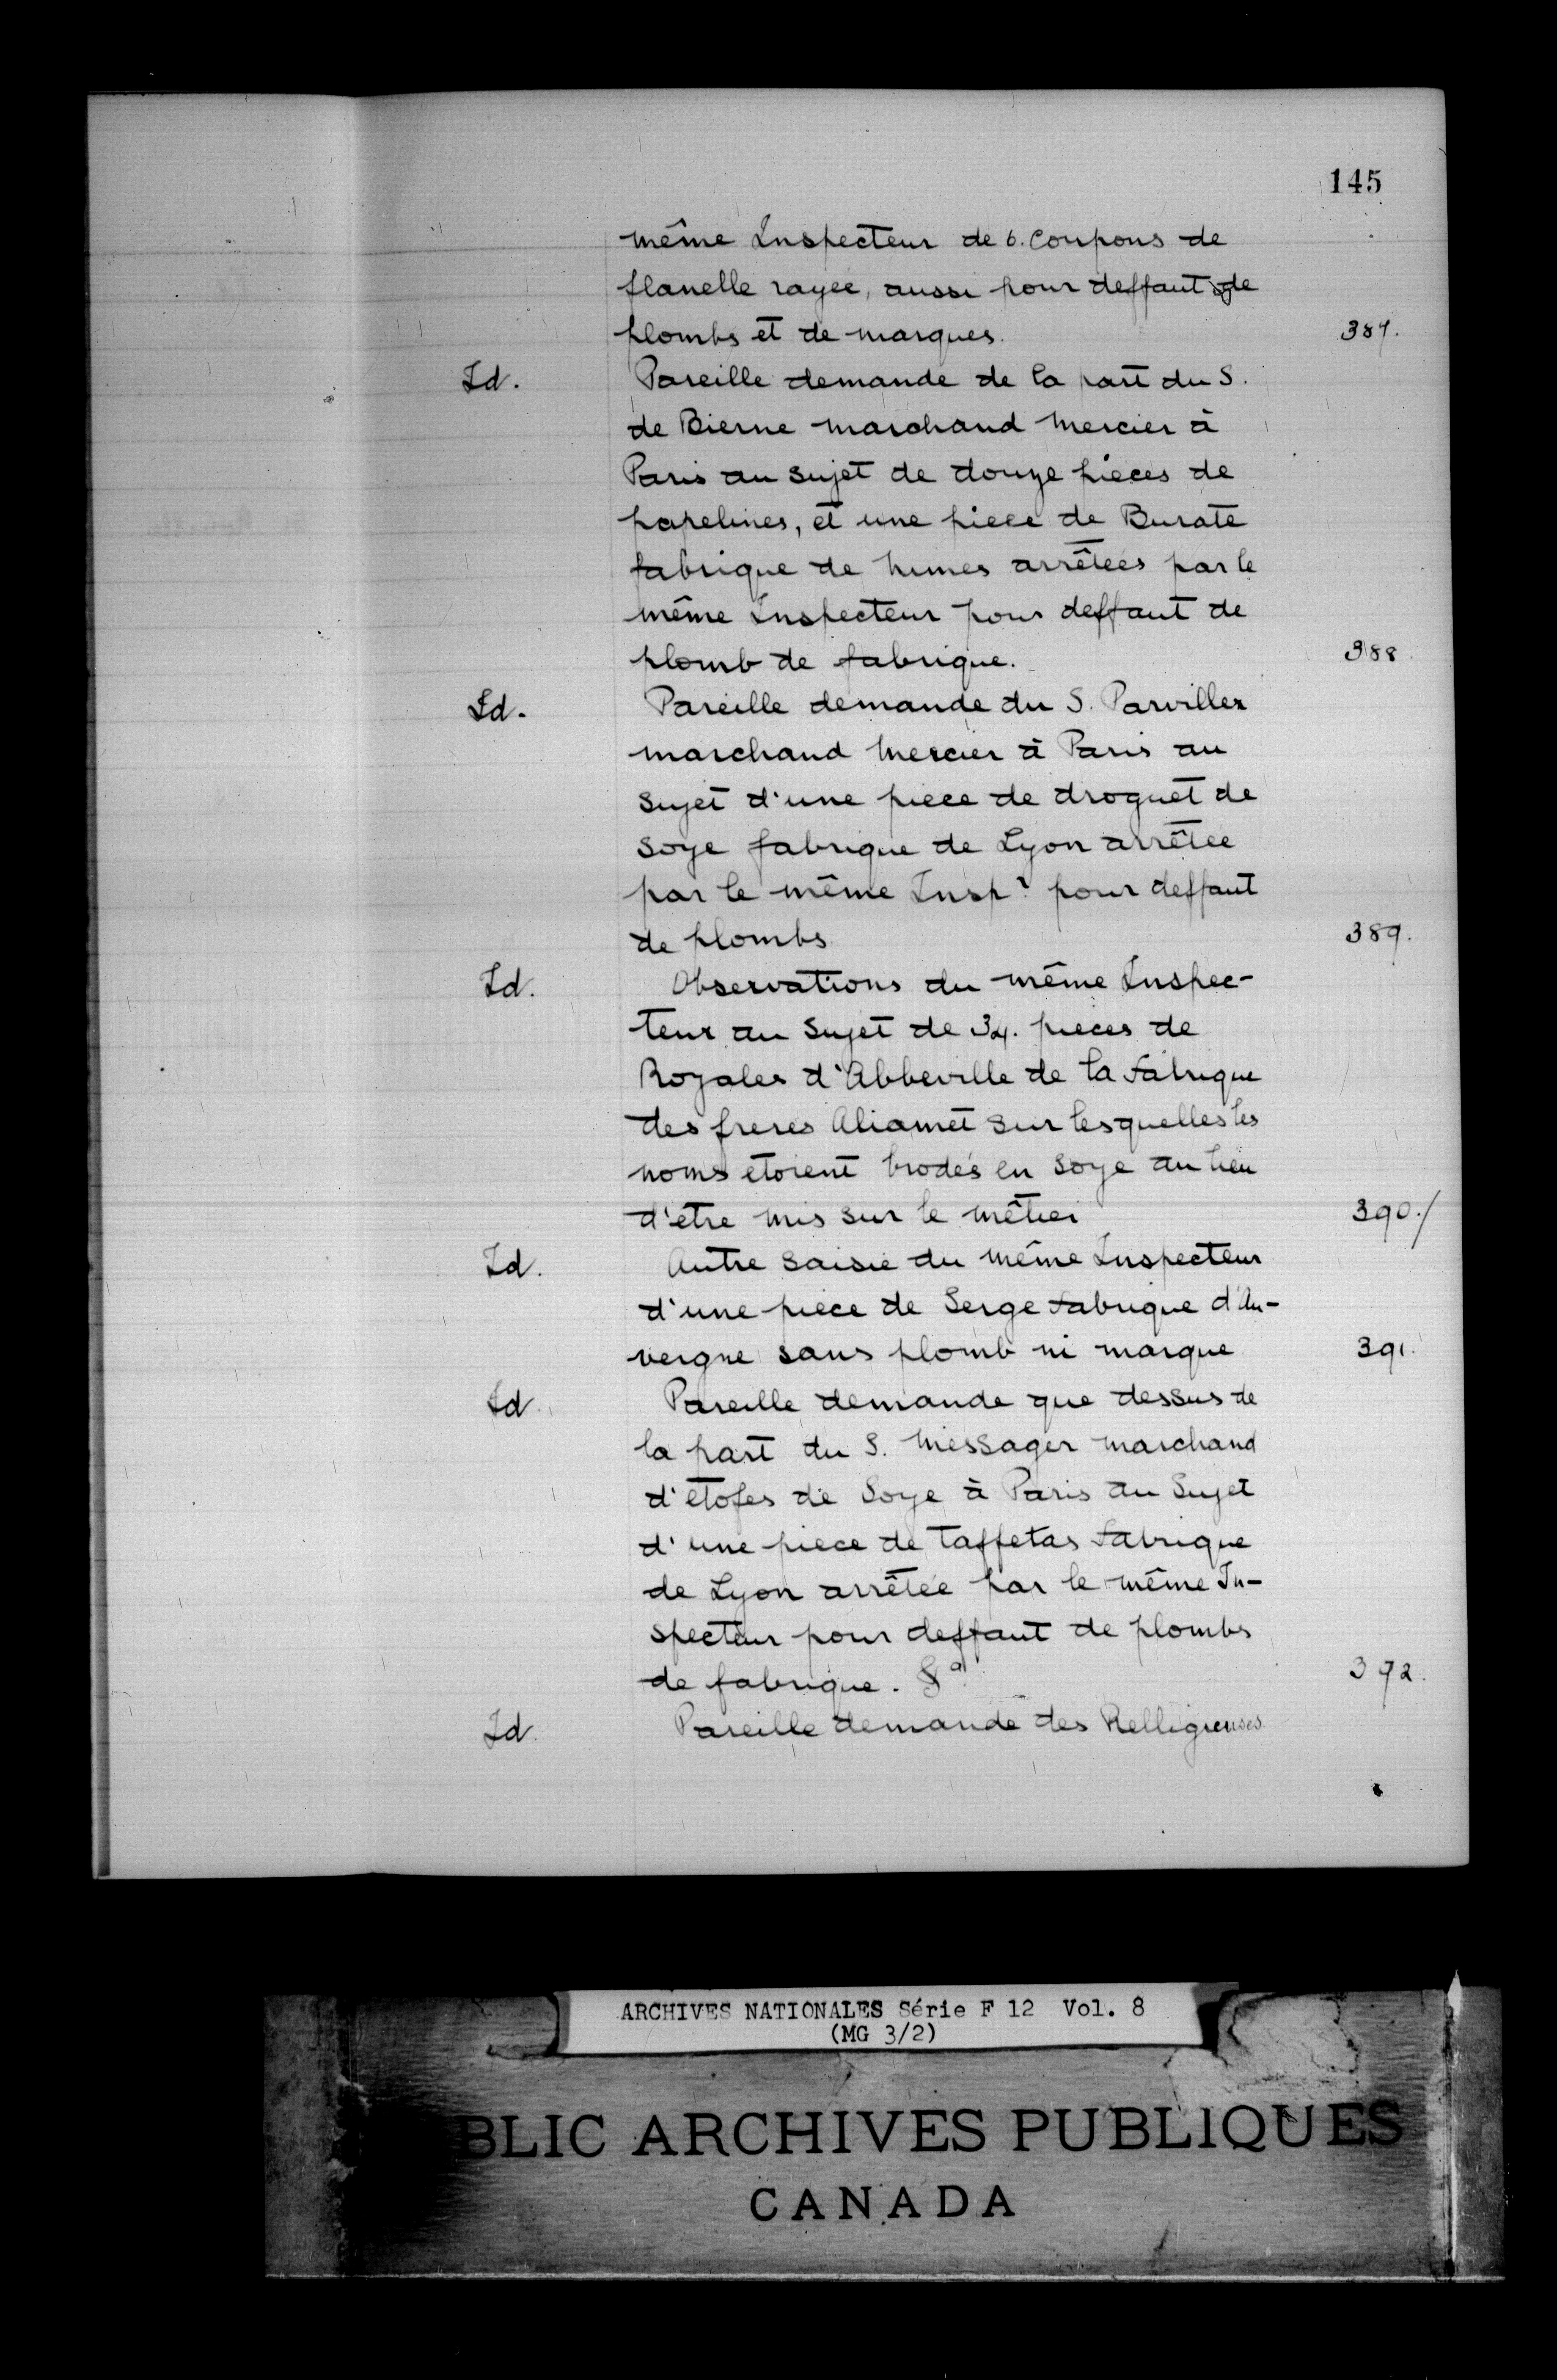 145
même Inspecteur de 6. Coupons de
flanelle rayée, aussi pour deffaut de
plombs et de marques. 387.
Id. Pareille demande de la part du S.
de Bierne marchand Mercier à
Paris au sujet de douze pièces de
papelines, et une piece de Burate
fabrique de Nimes arrêtées par le
même Inspecteur pour deffaut de
plomb de fabrique. 388.
Id. Pareille demande du S. Parviller
marchand Mercier à Paris au
sujet d'une piece de droguet de
soye fabrique de Lyon arrêtée
par le même Inspr. pour deffaut
de plombs 389.
Id. Observations du même Inspec-
teur au sujet de 34. pieces de
Royales d'Abbeville de la fabrique
des freres Aliamet sur lesquelles les
noms etoient brodés en soye au lieu
d'etre mis sur le mêtier 390./
Id. Autre saisie du même Inspecteur
d'une piece de Serge fabrique d'Au-
vergne sans plomb ni marque 391.
Id. Pareille demande que dessus de
la part du S. Messager marchand
d'étofes de Soye à Paris au Sujet
d'une piece de Taffetas fabrique
de Lyon arrêtée par le même In-
specteur pour deffaut de plombs
de fabrique. 392.
Id. Pareille demande des Relligieuses
ARCHIVES NATIONALES Série F 12 Vol. 8
(MG 3/2)
BLIC ARCHIVES PUBLIQUES
CANADA